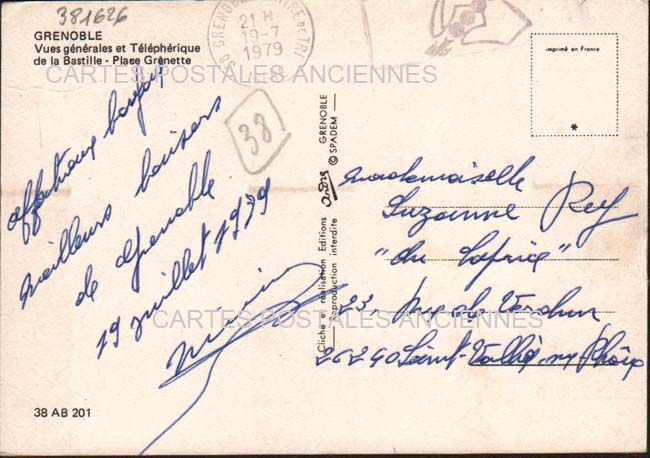 381626
GRENOBLE
Vues générales et Téléphérique
de la Bastille - Place Grenette
38 GRENOBLE TRI
21 H
19-7
1979
imprimé en France
*
CARTES POSTALES ANCIENNES
38
affectueux bonjour
meilleurs baisers
de Grenoble
19 juillet 1979
38 AB 201
Cliché et réalisation Editions André GRENOBLE
Reproduction interdite © SPADEM
Mademoiselle
Suzanne Rey
"du Caprice"
23, Rue de Verdun
26240 Saint-Vallier, s/ Rhône
CARTES POSTALES ANCIENNES